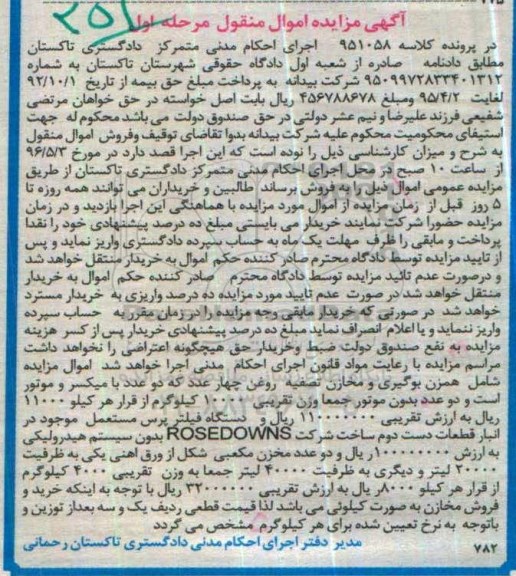 ۷۷۵
۲۵۱
آگهی مزایده اموال منقول مرحله اول
در پرونده کلاسه ۹۵۱۰۵۸ اجرای احکام مدنی متمرکز دادگستری تاکستان
مطابق دادنامه صادره از شعبه اول دادگاه حقوقی شهرستان تاکستان به شماره
۹۵۰۹۹۷۲۸۳۳۴۰۱۳۱۲ شرکت بیدانه به پرداخت مبلغ حق بیمه از تاریخ ۹۲/۱۰/۱
لغایت ۹۵/۴/۲ ومبلغ ۴۵۶۷۸۸۶۷۸ ریال بابت اصل خواسته در حق خواهان مرتضی
شفیعی فرزند علیرضا و نیم عشر دولتی در حق صندوق دولت می باشد محکوم له جهت
استیفای محکومیت محکوم علیه شرکت بیدانه بدوا تقاضای توقیف وفروش اموال منقول
به شرح و میزان کارشناسی ذیل را نوده است که این اجرا قصد دارد در مورخ ۹۶/۵/۳
از ساعت ۱۰ صبح در محل اجرای احکام مدنی متمرکز دادگستری تاکستان از طریق
مزایده عمومی اموال ذیل را به فروش برساند طالبین و خریداران می توانند همه روزه تا
۵ روز قبل از زمان مزایده از اموال مورد مزایده با هماهنگی این اجرا بازدید و در زمان
مزایده حضورا شرکت نمایند خریدار می بایستی مبلغ ده درصد پیشنهادی خود را نقدا
پرداخت و مابقی را ظرف مهلت یک ماه به حساب سپرده دادگستری واریز نماید و پس
از تایید مزایده توسط دادگاه محترم صادر کننده حکم اموال به خریدار منتقل خواهد شد
و درصورت عدم تائید مزایده توسط دادگاه محترم صادر کننده حکم اموال به خریدار
منتقل خواهد شد در صورت عدم تایید مورد مزایده ده درصد واریزی به خریدار مسترد
خواهد شد در صورتی که خریدار مابقی وجه مزایده را در زمان مقرر به حساب سپرده
واریز ننماید و یا اعلام انصراف نماید مبلغ ده درصد پیشنهادی خریدار پس از کسر هزینه
مزایده به نفع صندوق دولت ضبط وخریدار حق هیچگونه اعتراضی را نخواهد داشت
مراسم مزایده با رعایت مواد قانون اجرای احکام مدنی اجرا خواهد شد اموال مزایده
شامل همزن بوگیری و مخازن تصفیه روغن چهار عدد که دو عدد با میکسر و موتور
است و دو عدد بدون موتور جمعا وزن تقریبی کیلوگرم از قرار هر کیلو ۱۱۰۰۰
ریال به ارزش تقریبی ریال و دستگاه فیلتر پرس مستعمل موجود در
انبار قطعات دست دوم ساخت شرکت ROSEDOWNS بدون سیستم هیدرولیکی
به ارزش ۱۰۰۰۰۰۰۰۰ ریال و دو عدد مخزن مکعبی شکل از ورق اهنی یکی به ظرفیت
۲۰۰۰۰ لیتر و دیگری به ظرفیت ۴۰۰۰۰ لیتر جمعا به وزن تقریبی ۴۰۰۰ کیلوگرم
از قرار هر کیلو ۸۰۰۰ ریال به ارزش تقریبی ۳۲۰۰۰۰۰۰ ریال با توجه به اینکه خرید و
فروش مخازن به صورت کیلوئی می باشد لذا قیمت قطعی ردیف یک و سه بعداز توزین و
باتوجه به نرخ تعیین شده برای هر کیلوگرم مشخص می گردد
مدیر دفتر اجرای احکام مدنی دادگستری تاکستان رحمانی
۷۸۲